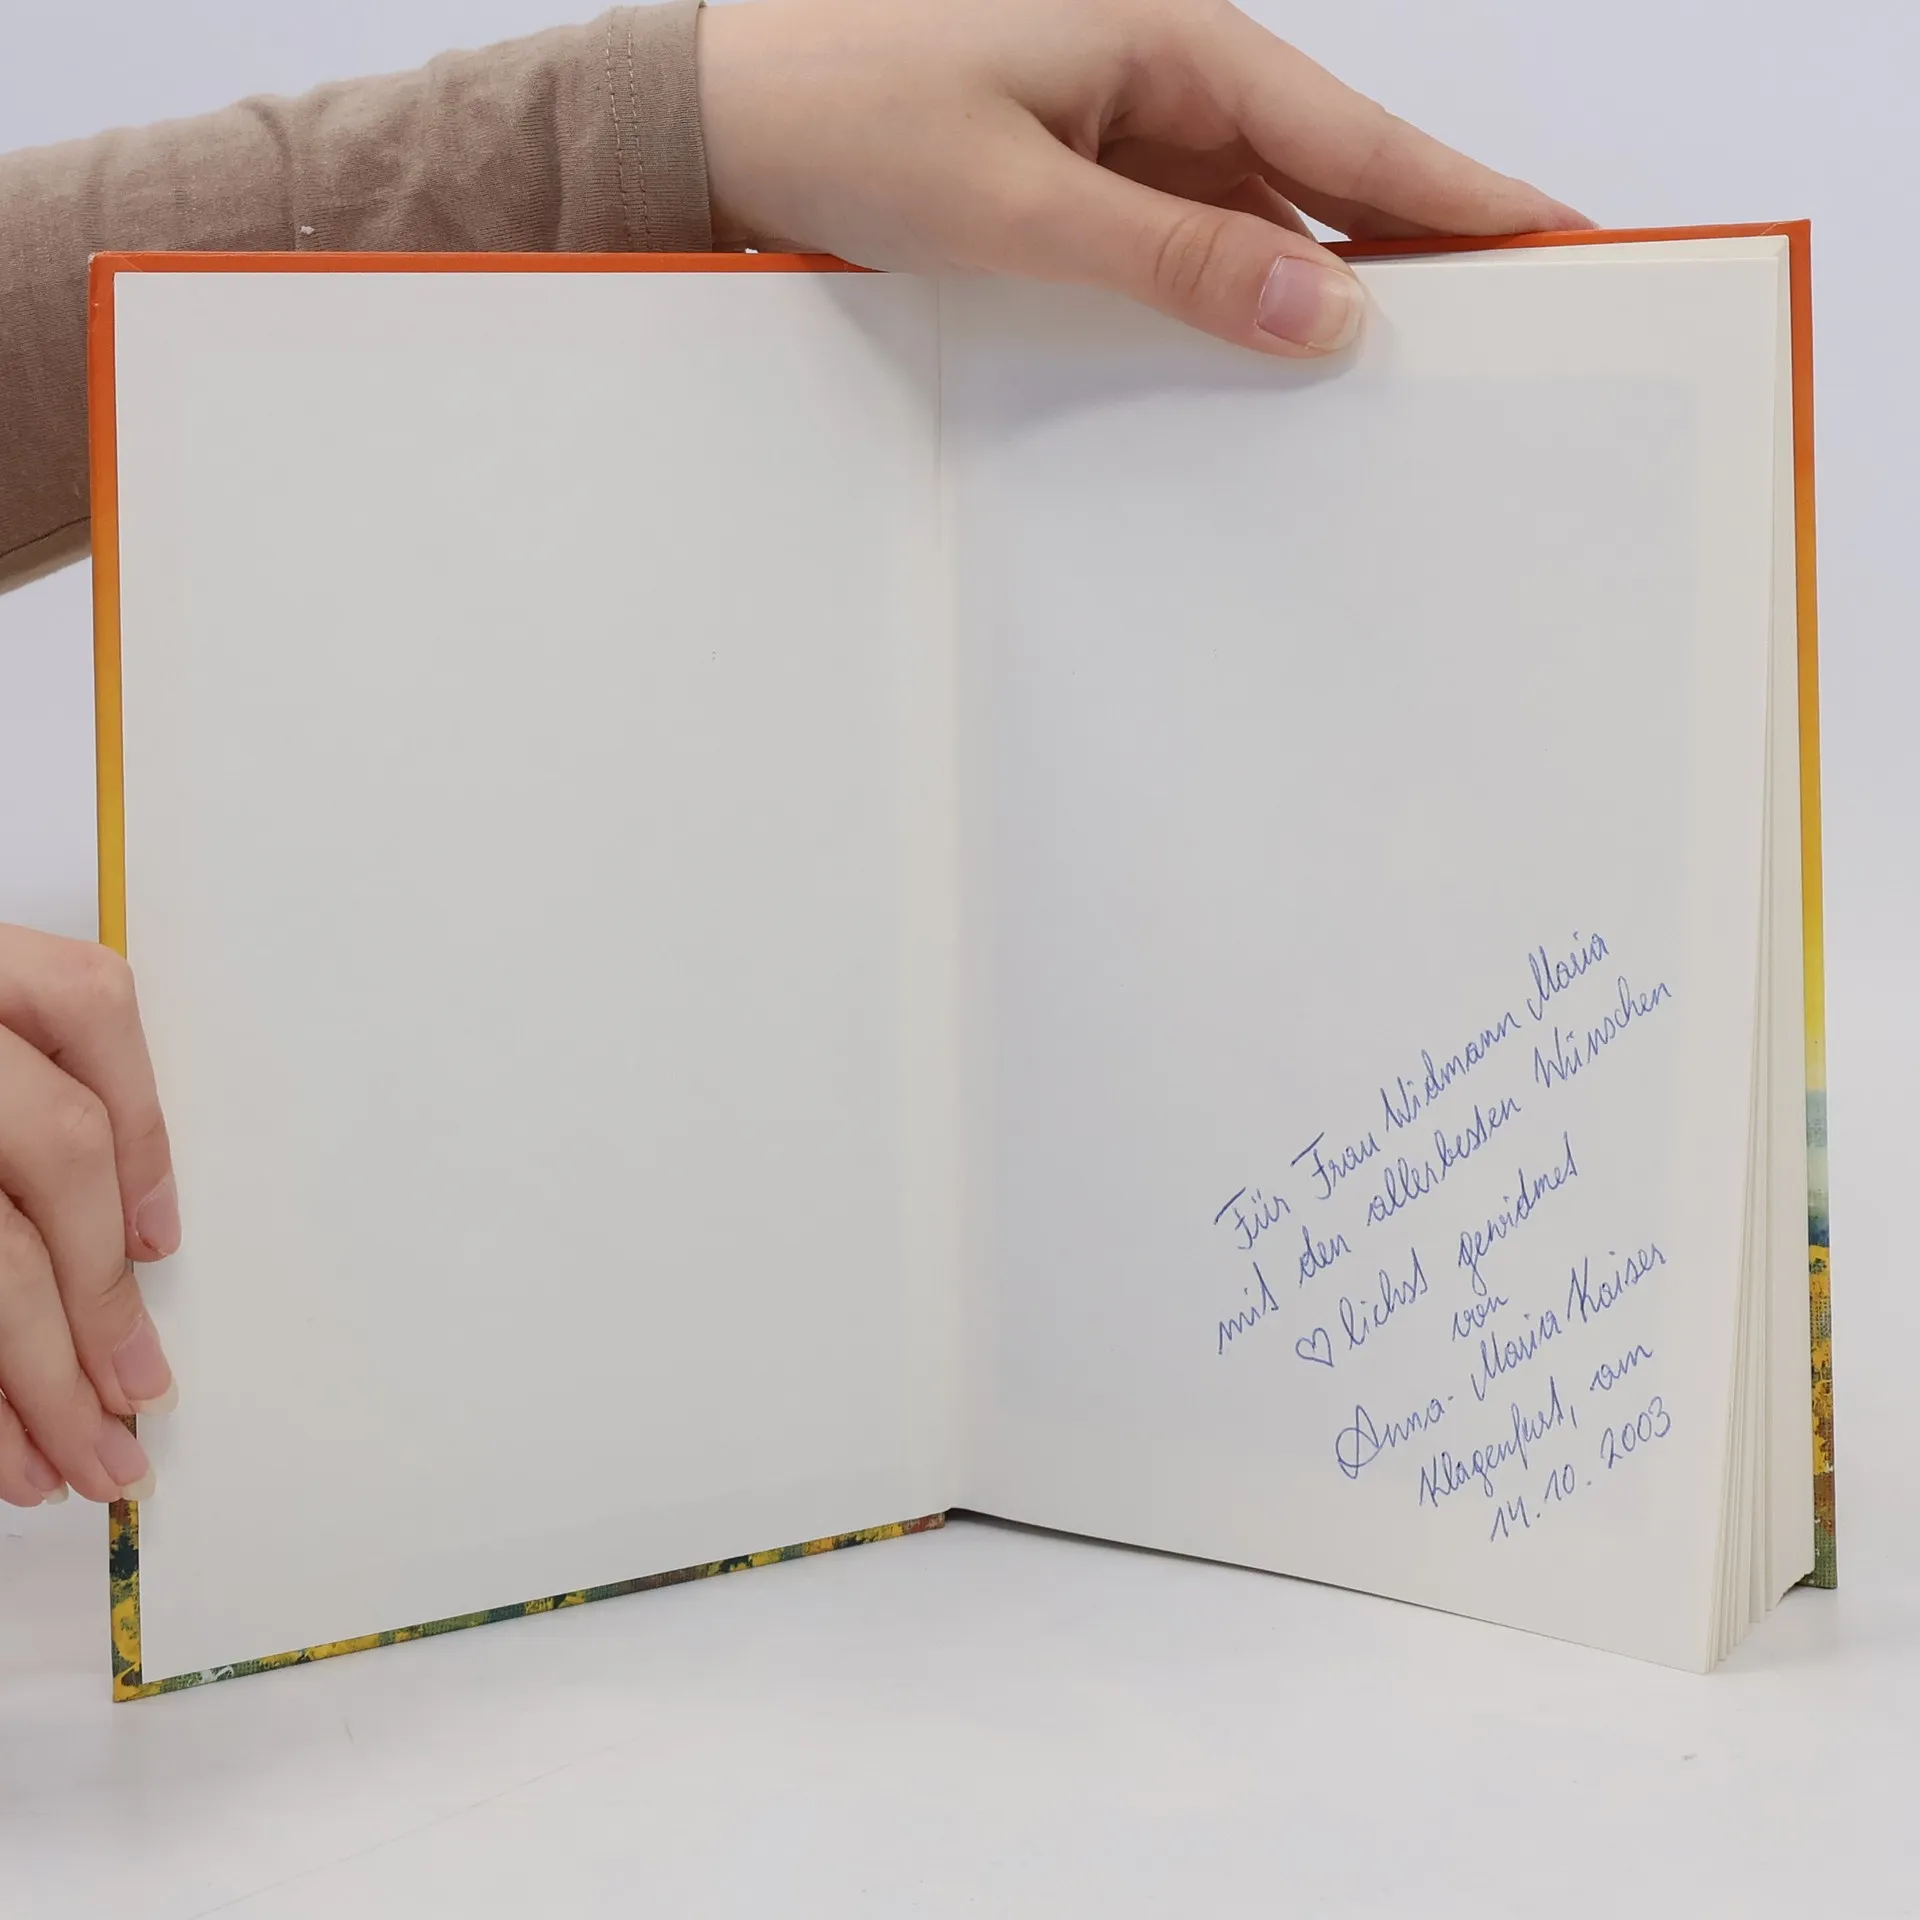 Für Frau Widmann Maria
mit den allerbesten Wünschen
♡lichst gewidmet
von
Anna-Maria Kaiser
Klagenfurt, am
14.10.2003